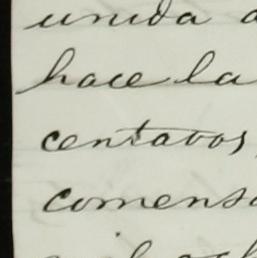 unida a
hace la
centavos,
comens